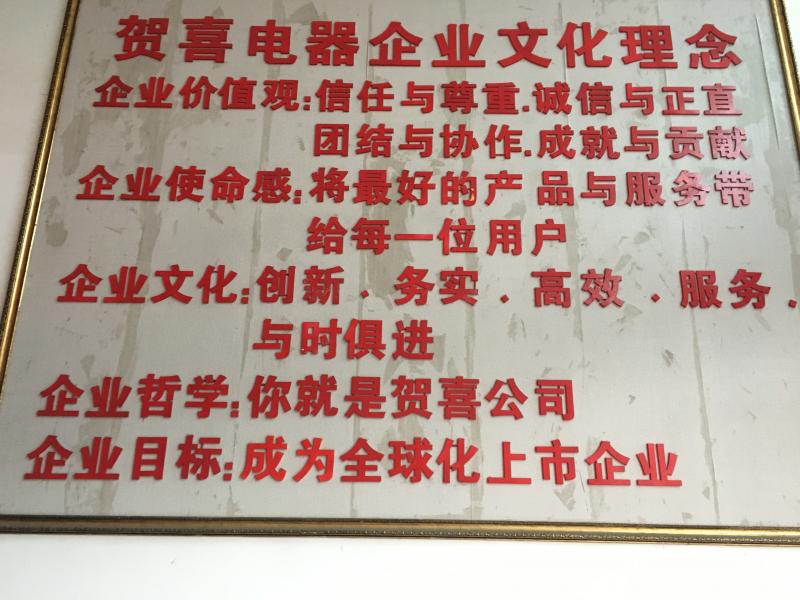 贺喜电器企业文化理念
企业价值观:信任与尊重.诚信与正直
团结与协作.成就与贡献
企业使命感:将最好的产品与服务带
给每一位用户
企业文化:创新.务实.高效.服务.
与时俱进
企业哲学:你就是贺喜公司
企业目标:成为全球化上市企业